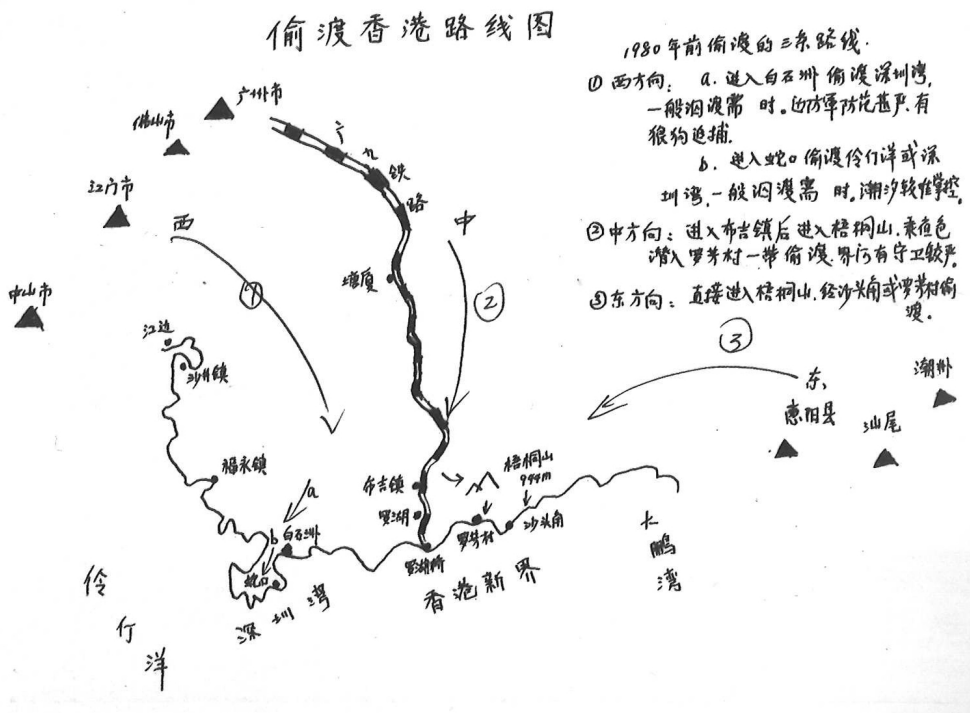 偷渡香港路线图
1980年前偷渡的三条路线.
① 西方向: a. 进入白石洲偷渡深圳湾,
一般泅渡需 时。边防軍防范甚严,有
狼狗追捕.
b. 进入蛇口偷渡伶仃洋或深
圳湾,一般泅渡需 时,潮汐较难掌控。
②中方向: 进入布吉镇后进入梧桐山,乘夜色
潜入罗芳村一带偷渡.界河有守卫较严.
③东方向: 直接进入梧桐山,经沙头角或罗芳村偷
渡。
广州市
佛山市
江门市
中山市
广九铁路
西
中
①
②
③
塘厦
东
惠阳县
潮州
汕尾
江边
沙井镇
福永镇
a
b
白石洲
蛇口
布吉镇
罗湖
罗湖桥
梧桐山
944m
罗芳村
沙头角
大鹏湾
香港新界
深圳湾
伶仃洋